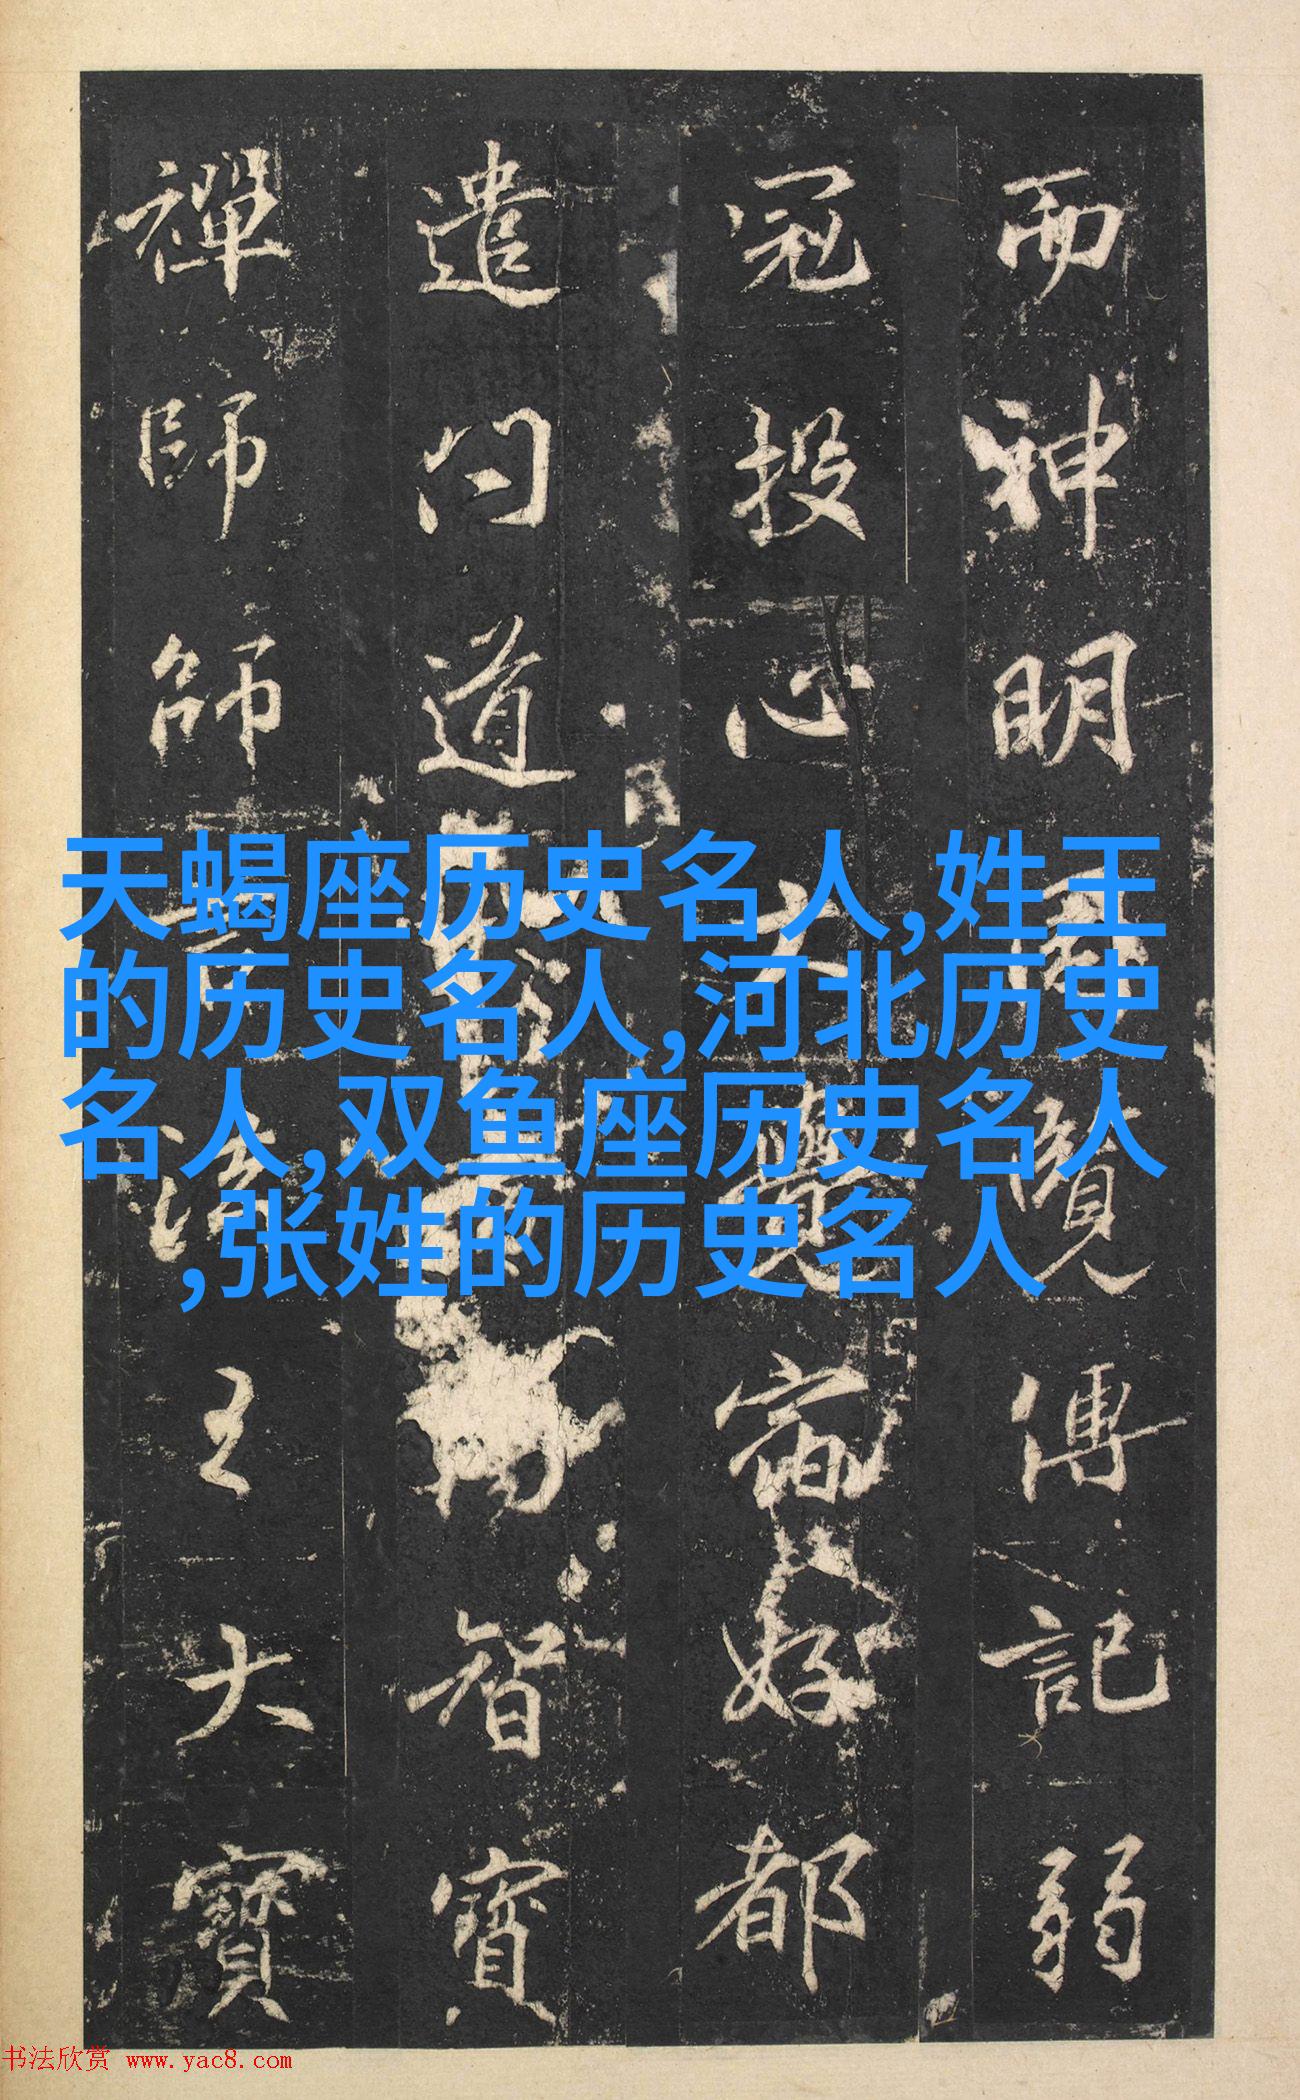 而神明周覽傳記弱
冠投心大覺宿好都
遣問道智寶
禪師師法王大寶
天蝎座历史名人,姓王
的历史名人,河北历史
名人,双鱼座历史名人
,张姓的历史名人
书法欣赏 www.yac8.com